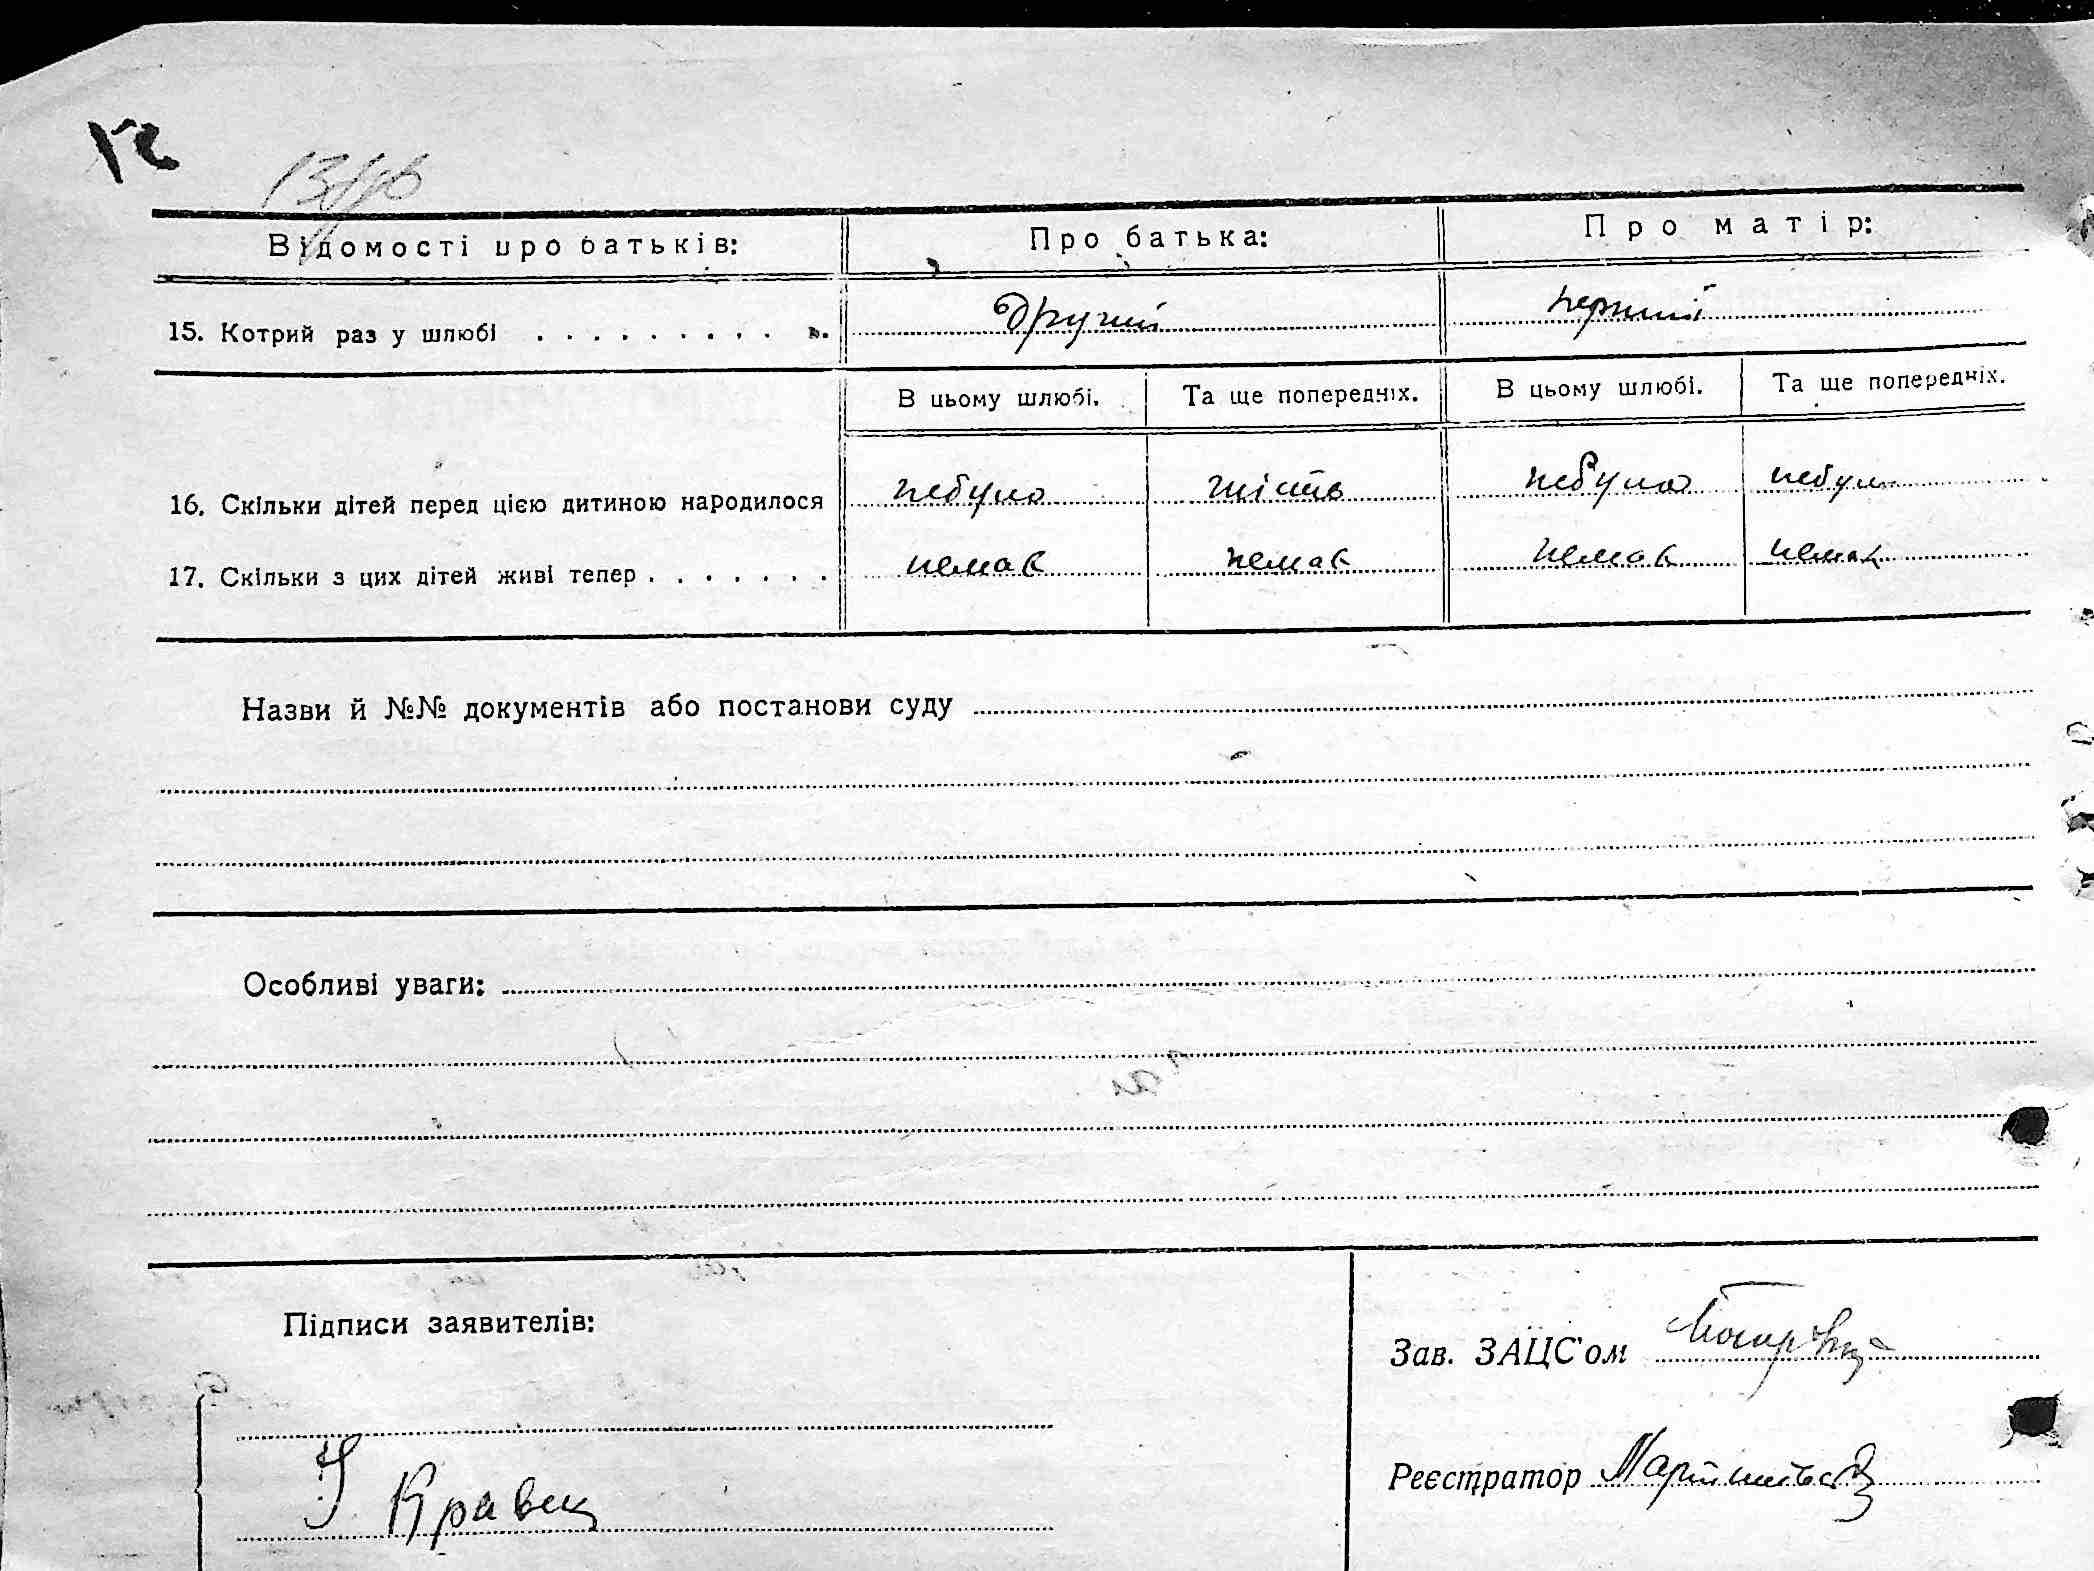 Відомості про батьків: Про батька: Про матір:
15. Котрий раз у шлюбі . . . . . . . . . . . другий перший
В цьому шлюбі. Та ще попередніх. В цьому шлюбі. Та ще попередніх.
16. Скільки дітей перед цією дитиною народилося небуло шість небуло небуло
17. Скільки з цих дітей живі тепер . . . . . . . немає немає немає немає
Назви й №№ документів або постанови суду
Особливі уваги:
Підписи заявителів:
Зав. ЗАЦС'ом
Реєстратор
Кравец